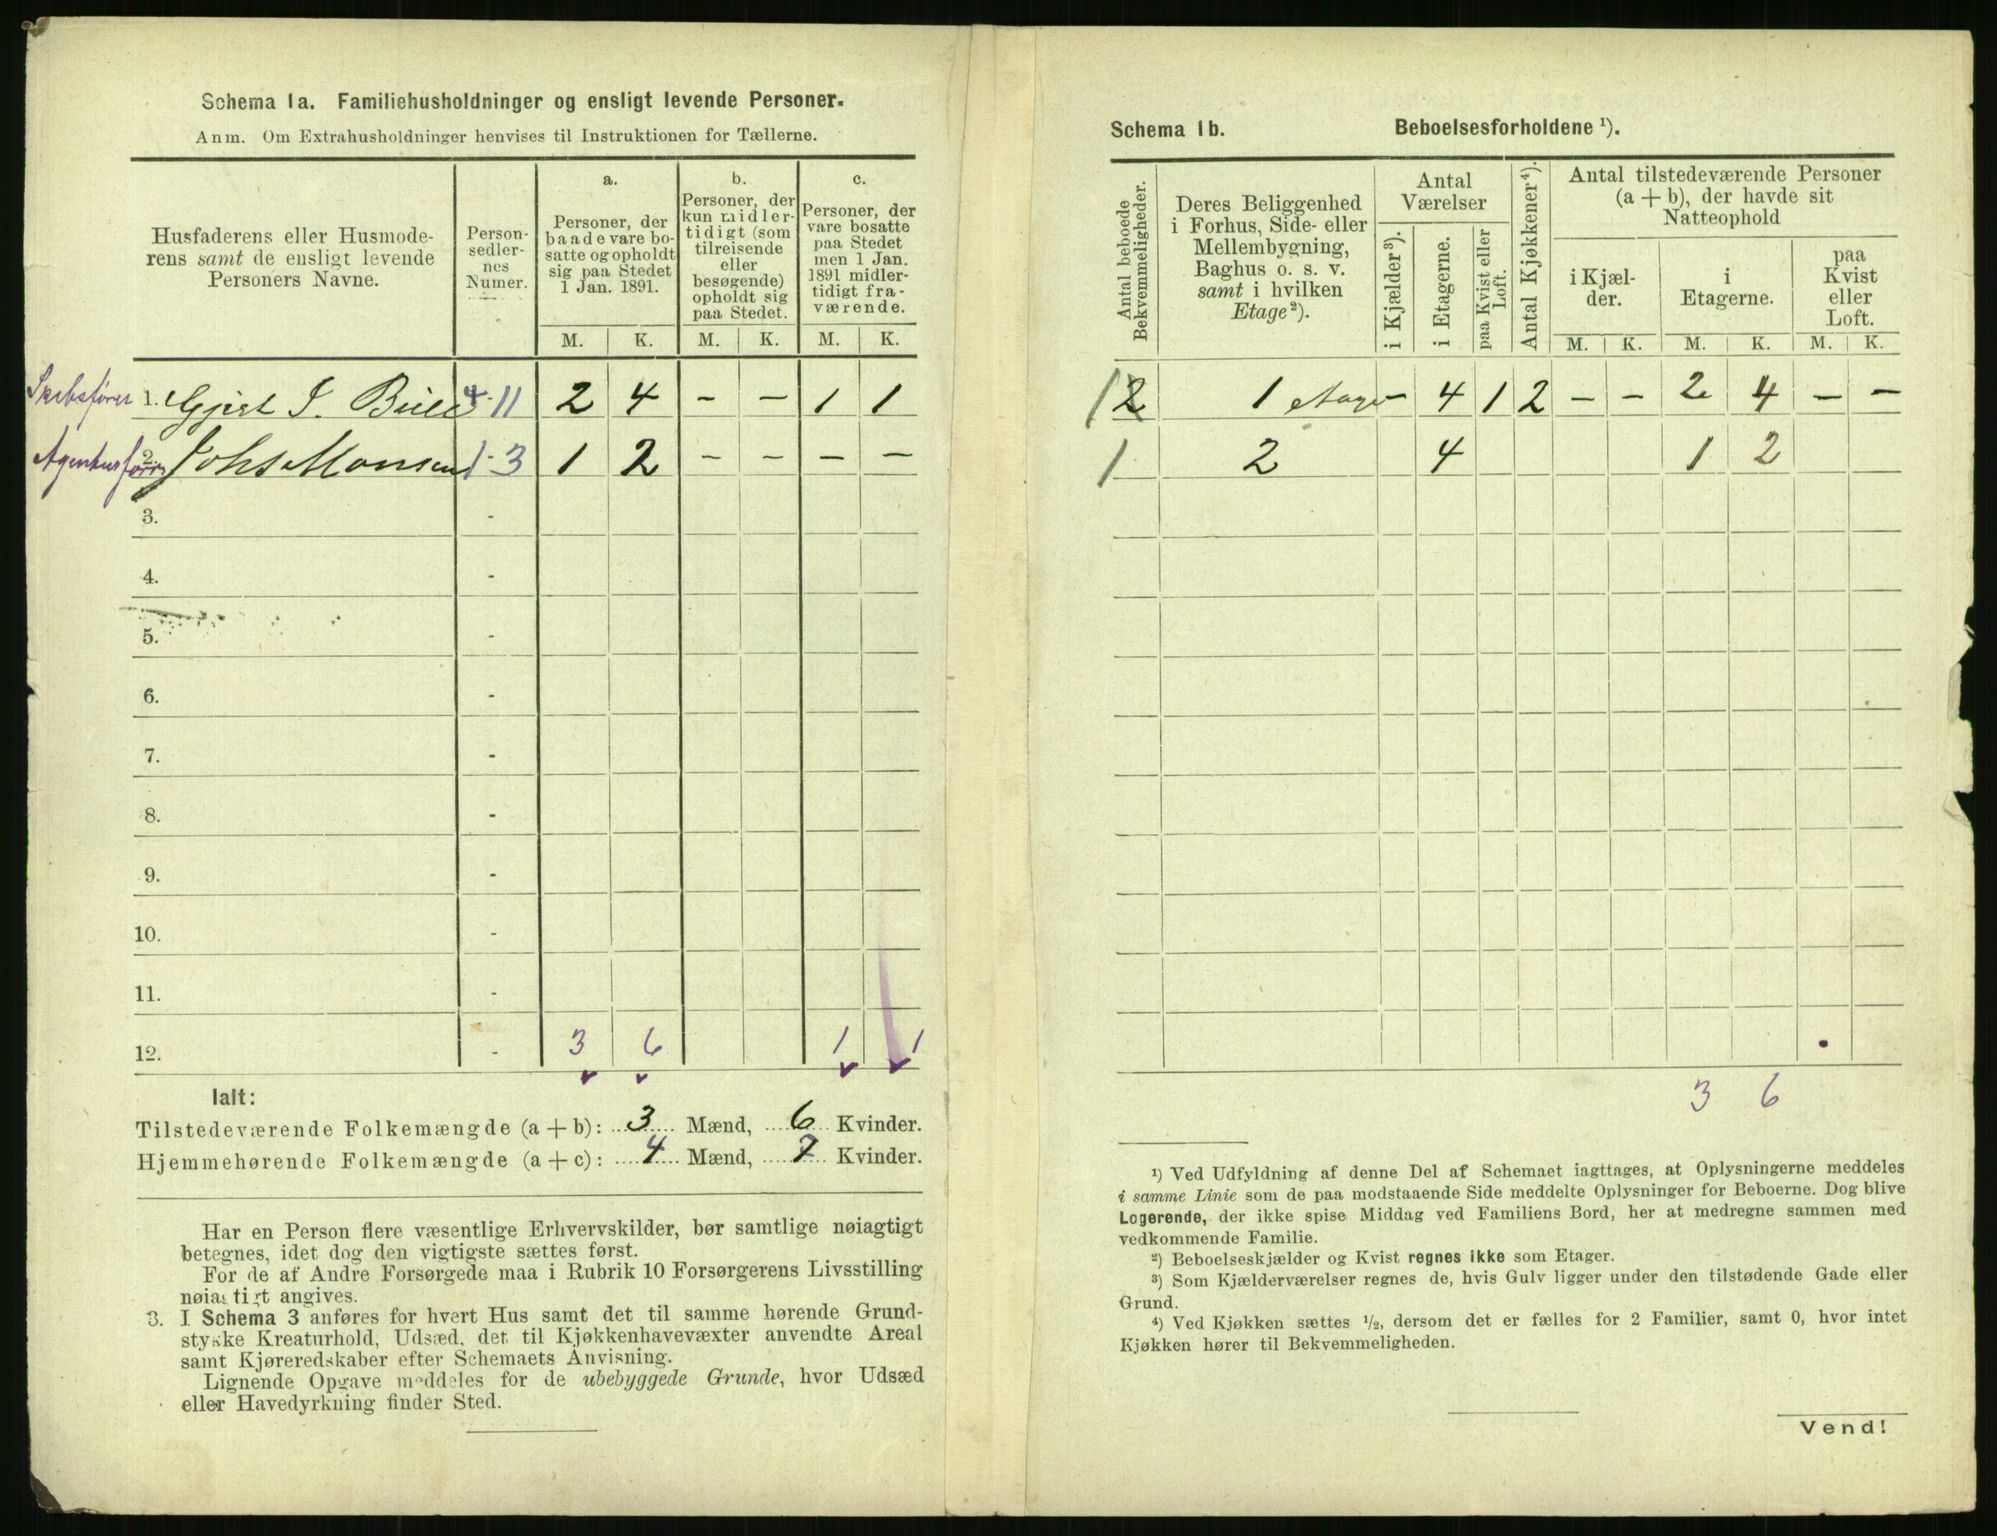 Schema 1a. Familiehusholdninger og ensligt levende Personer.
Anm. Om Extrahusholdninger henvises til Instruktionen for Tællerne.
Husfaderens eller Husmode-
rens samt de ensligt levende
Personers Navne.
Person-
sedler-
nes
Numer.
a.
Personer, der
baade vare bo-
satte og opholdt
sig paa Stedet
1 Jan. 1891.
b.
Personer, der
kun midler-
tidigt (som
tilreisende
eller
besøgende)
opholdt sig
paa Stedet.
c.
Personer, der
vare bosatte
paa Stedet
men 1 Jan.
1891 midler-
tidigt fra-
værende.
M. K. M. K. M. K.
1. Gjert S. 4-11 2 4 – – 1 1
2. Johs Monsen 1-3 1 2 – – – –
3. -
4. -
5. -
6. -
7. -
8. -
9. -
10. -
11. -
12. - 3 6 1 1
Ialt:
Tilstedeværende Folkemængde (a + b): 3 Mænd, 6 Kvinder.
Hjemmehørende Folkemængde (a + c): 4 Mænd, 7 Kvinder.
Har en Person flere væsentlige Erhvervskilder, bør samtlige nøiagtigt
betegnes, idet dog den vigtigste sættes først.
For de af Andre Forsørgede maa i Rubrik 10 Forsørgerens Livsstilling
nøiagtigt angives.
3. I Schema 3 anføres for hvert Hus samt det til samme hørende Grund-
stykke Kreaturhold, Udsæd, det til Kjøkkenhavevæxter anvendte Areal
samt Kjøreredskaber efter Schemaets Anvisning.
Lignende Opgave meddeles for de ubebyggede Grunde, hvor Udsæd
eller Havedyrkning finder Sted.
Schema 1b. Beboelsesforholdene ¹).
Antal beboede
Bekvemmeligheder.
Deres Beliggenhed
i Forhus, Side- eller
Mellembygning,
Baghus o. s. v.
samt i hvilken
Etage²).
Antal
Værelser
i Kjælder³).
i Etagerne.
paa Kvist eller
Loft.
Antal Kjøkkener⁴).
Antal tilstedeværende Personer
(a + b), der havde sit
Natteophold
i Kjæl-
der.
i
Etagerne.
paa
Kvist
eller
Loft.
M. K. M. K. M. K.
1 2 1 Etage – 4 1 2 – – 2 4 – –
1 2 4 1 2
3 6
¹) Ved Udfyldning af denne Del af Schemaet iagttages, at Oplysningerne meddeles
i samme Linie som de paa modstaaende Side meddelte Oplysninger for Beboerne. Dog blive
Logerende, der ikke spise Middag ved Familiens Bord, her at medregne sammen med
vedkommende Familie.
²) Beboelseskjælder og Kvist regnes ikke som Etager.
³) Som Kjælderværelser regnes de, hvis Gulv ligger under den tilstødende Gade eller
Grund.
⁴) Ved Kjøkken sættes ½, dersom det er fælles for 2 Familier, samt 0, hvor intet
Kjøkken hører til Bekvemmeligheden.
Vend!